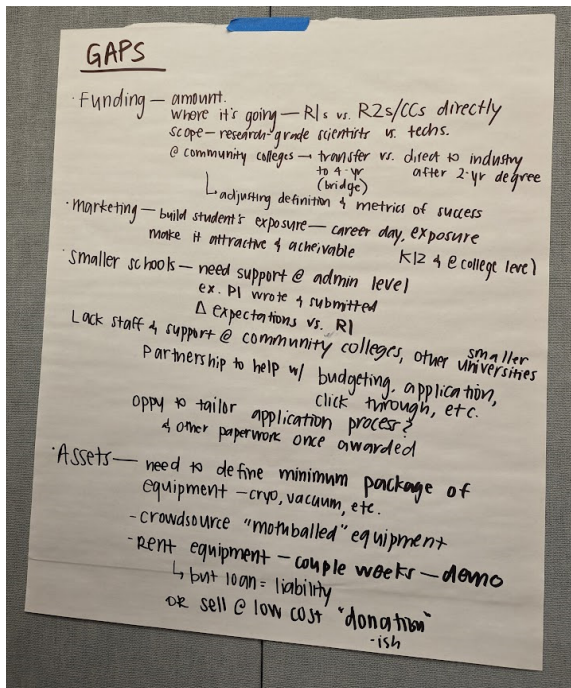 GAPS
· Funding — amount.
where it's going — R1s vs. R2s/CCs directly
scope — research-grade scientists vs. techs.
@ community colleges → transfer vs. direct to industry
to 4-yr after 2-yr degree
(bridge)
↳ adjusting definition & metrics of success
· marketing — build student's exposure — career day, exposure
make it attractive & acheivable K12 & @ college level
· Smaller schools — need support @ admin level
ex. PI wrote & submitted
Δ expectations vs. R1
Lack staff & support @ community colleges, other smaller universities
Partnership to help w/ budgeting, application,
click through, etc.
oppy to tailor application process?
& other paperwork once awarded
· Assets — need to define minimum package of
equipment — cryo, vacuum, etc.
- crowdsource "mothballed" equipment
- Rent equipment — couple weeks — demo
↳ but loan = liability
OR sell @ low cost "donation"
-ish